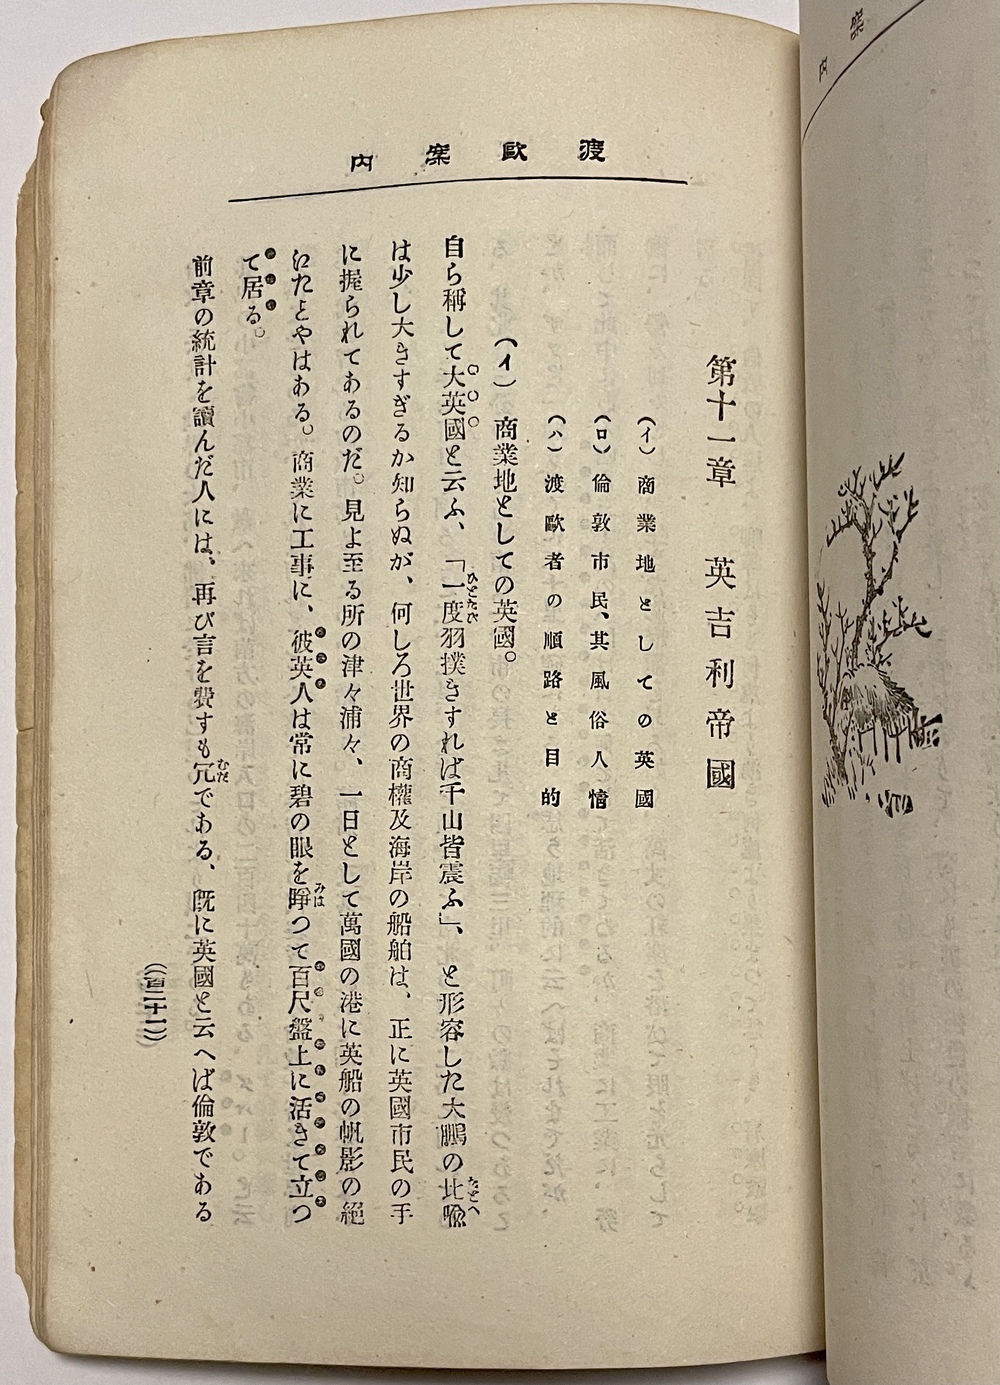 渡歐案内
第十一章 英吉利帝國
(イ)商業地としての英國
(ロ)倫敦市民、其風俗人情
(ハ)渡歐者の順路と目的
(イ) 商業地としての英國。
自ら稱して大英國と云ふ、「一度羽撲きすれば千山皆震ふ」、と形容した大鵬の比喩
は少し大きすぎるか知らぬが、何しろ世界の商權及海岸の船舶は、正に英國市民の手
に握られてあるのだ。見よ至る所の津々浦々、一日として萬國の港に英船の帆影の絕
江たとやはある。商業に工事に、彼英人は常に碧の眼を睜つて百尺盤上に活きて立つ
て居る。
前章の統計を讀んだ人には、再び言を費すも冗である、既に英國と云へば倫敦である
(百二十一)
案内